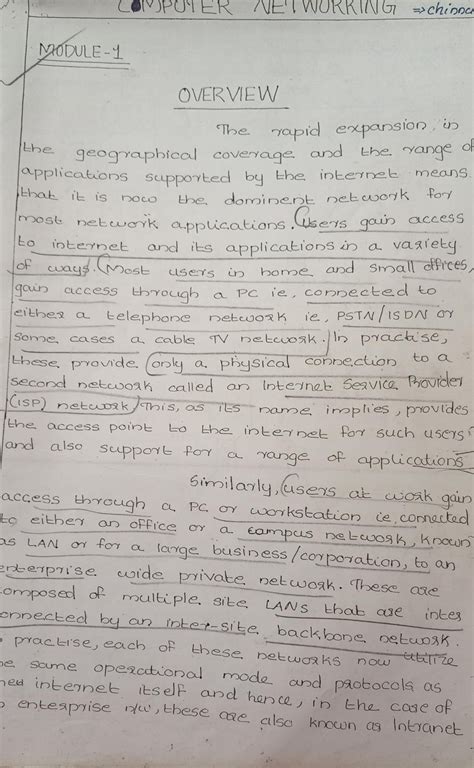 COMPUTER NETWORKING ⇒chinna
MODULE-1
OVERVIEW
The rapid expansion in
the geographical coverage and the range of
applications supported by the internet means
that it is now the dominent network for
most network applications. (Users gain access
to internet and its applications in a variety
of ways. (Most users in home and small offices,
gain access through a PC ie, connected to
either a telephone network ie, PSTN/ISDN or
some cases a cable TV network.) In practise,
these, provide (only a physical connection to a
second network called an Internet Service Provider
(ISP) network) This, as its name implies, provides
the access point to the internet for such users
and also support for a range of applications
Similarly, (users at work gain
access through a PC or workstation ie connected
to either an office or a campus network, known
as LAN or for a large business/corporation, to an
enterprise wide private network. These are
composed of multiple site LANs that are inter
connected by an inter-site backbone network.
practise, each of these networks now utilize
same operational mode and protocols as
internet itself and hence, in the case of
enterprise n/w, these are also known as Intranet